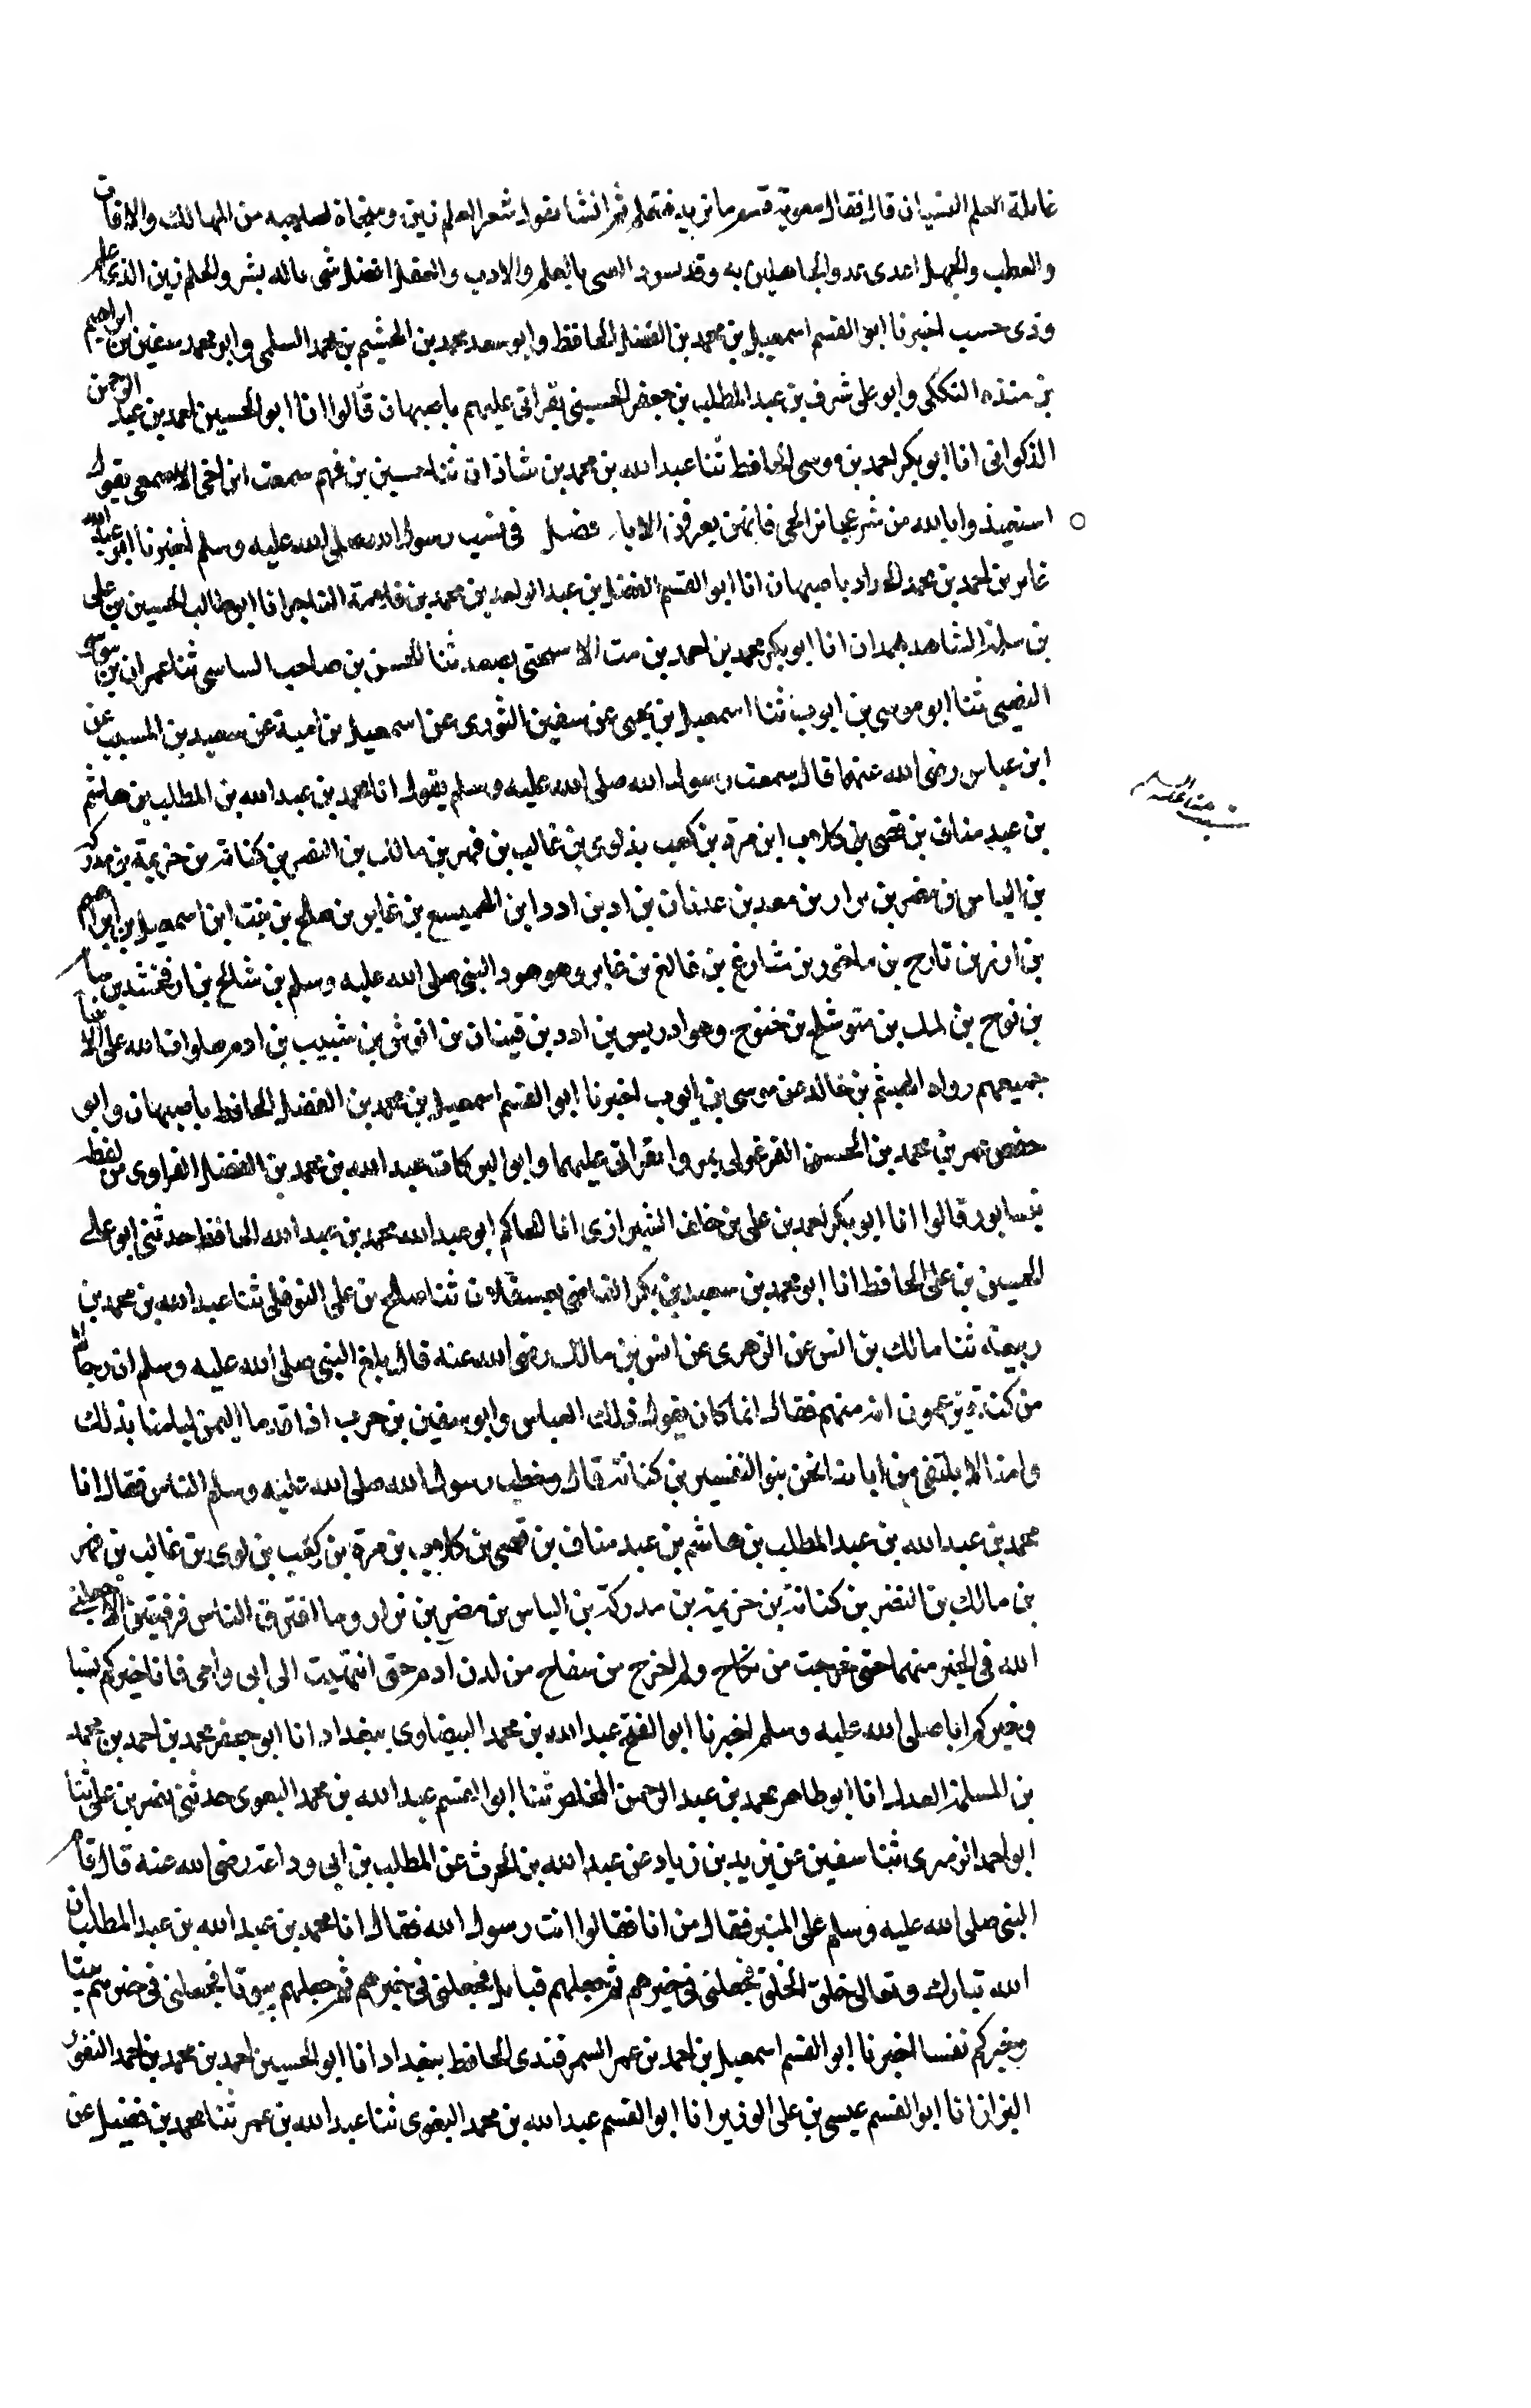 العلم النسيان قال فقال معوية قسم ما تريد فتعلم ثم انشا يقول شعر العلم زين ومنجاة لصاحبه من المهالك والافات
والعطب والجهل اعدى عدو الجاهلين به وقد يسود الفتى بالعلم والادب والعقل افضل شى ناله بشر والحلم زين الذى علم
وذى حسب اخبرنا ابو القسم اسمعيل بن محمد بن الفضل الحافظ وابو سعد محمد بن الهيثم بن محمد السلمى وابو محمد سفين بن ابراهيم
بن منده وابو على شرف بن عبد المطلب بن جعفر الحسينى بقراتى عليهم باصبهان قالوا انا ابو الحسين احمد بن عبد الرحمن
الذكوانى انا ابو بكر احمد بن موسى الحافظ ثنا عبد الله بن محمد بن شاذان ثنا حسين بن فهم سمعت ابن اخى الاصمعى يقول
استعيذوا بالله من شر عجائز الحى فانهن يعرفن الابا فصل فى نسب رسول الله صلى الله عليه وسلم اخبرنا ابو عبد الله
بن احمد بن محمد باصبهان انا ابو القسم الفضل بن عبد الواحد بن محمد بن التاجر انا ابو طالب الحسين بن على
بن سلمة الشاهد بهمدان انا ابو بكر محمد بن احمد بن مت ثنا الحسن بن صاحب الساسى ثنا عمران بن موسى
النصيبى ثنا ابو موسى بن ايوب ثنا اسمعيل بن يحيى عن سفين الثورى عن اسمعيل بن امية عن سعيد بن المسيب عن
ابن عباس رضى الله عنهما قال سمعت رسول الله صلى الله عليه وسلم يقول انا محمد بن عبد الله بن المطلب بن هاشم
بن عبد مناف بن قصى بن كلاب ابن مرة بن كعب بن لوى بن غالب بن فهر بن مالك بن النضر بن كنانة بن خزيمة بن مدركة
بن الياس بن مضر بن نزار بن معد بن عدنان بن اد بن ادد ابن الهميسع بن غابر بن صالح بن نبت ابن اسمعيل بن ابراهيم
بن ازر بن تارح بن ناخور بن شارغ بن فالغ بن غابر وهو هود النبى صلى الله عليه وسلم بن شالخ بن ارفخشد بن سام
بن نوح بن لمك بن متوشلخ بن خنوخ وهو ادريس بن ادد بن قينان بن انوش بن شبيب بن ادم صلوات الله على الانبيا
جميعهم رواه الهيثم بن خالد عن موسى بن ايوب اخبرنا ابو القسم اسمعيل بن محمد بن الفضل الحافظ باصبهان وابو
حفص عمر بن محمد بن الحسن الفرغولى بمرو بقراتى عليهما وابو البركات عبد الله بن محمد بن الفضل الفراوى من لفظه
بنيسابور قالوا انا ابو بكر احمد بن على بن خلف الشيرازى انا الحاكم ابو عبد الله محمد بن عبد الله الحافظ حدثنى ابو على
الحسين بن على الحافظ انا ابو محمد بن سعيد بن بكر القاضى بعسقلان ثنا صالح بن على النوفلى ثنا عبد الله بن محمد بن
ربيعة ثنا مالك بن انس عن الزهرى عن انس بن مالك رضى الله عنه قال بلغ النبى صلى الله عليه وسلم ان رجالا
من كندة يزعمون انه منهم فقال انما كان يقول ذلك العباس وابو سفين بن حرب اذا قدما اليمن ليامنا بذلك
وانا لا ننتفى من ابائنا نحن بنو النضر بن كنانة قال وخطب رسول الله صلى الله عليه وسلم الناس فقال انا
محمد بن عبد الله بن عبد المطلب بن هاشم بن عبد مناف بن قصى بن كلاب بن مرة بن كعب بن لوى بن غالب بن فهر
بن مالك بن النضر بن كنانة بن خزيمة بن مدركة بن الياس بن مضر بن نزار وما افترق الناس فرقتين الا جعلنى
الله فى الخير منهما حتى خرجت من نكاح ولم اخرج من سفاح من لدن آدم حتى انتهيت الى ابى وامى فانا خيركم نسبا
وخيركم ابا صلى الله عليه وسلم اخبرنا ابو الفتح عبد الله بن محمد البيضاوى ببغداد انا ابو جعفر محمد بن احمد بن محمد
بن المسلمة العدل انا ابو طاهر محمد بن عبد الرحمن المخلص ثنا ابو القسم عبد الله بن محمد البغوى حدثنى نصر بن على ثنا
ابو احمد الزبيرى ثنا سفين عن يزيد بن زياد عن عبد الله بن الحرث عن المطلب بن ابى وداعة رضى الله عنه قال قام
النبى صلى الله عليه وسلم على المنبر فقال من انا فقالوا انت رسول الله فقال انا محمد بن عبد الله بن عبد المطلب ان
الله تبارك وتعالى خلق الخلق فجعلنى فى خيرهم ثم جعلهم قبايل فجعلنى فى خيرهم ثم جعلهم بيوتا فجعلنى فى خيرهم بيتا
وخيركم نفسا اخبرنا ابو القسم اسمعيل بن احمد بن عمر السمرقندى الحافظ ببغداد انا ابو الحسين احمد بن محمد بن احمد النقور
البزاز انا ابو القسم عيسى بن على الوزير انا ابو القسم عبد الله بن محمد البغوى ثنا عبد الله بن عمر ثنا محمد بن فضيل عن